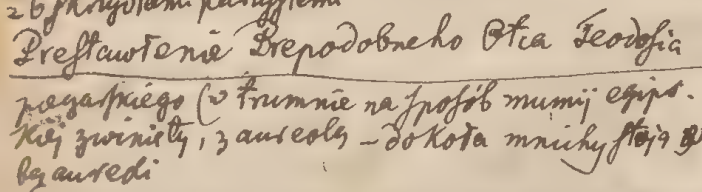 z 6 skrzydłami pstrymi
Prestawłenie Prepodobneho Otca Feodosia
peczarskiego (w trumnie na sposób mumij egips-
kiej zwinięty, z aureolą – dokoła mnichy stoją
bez aureoli